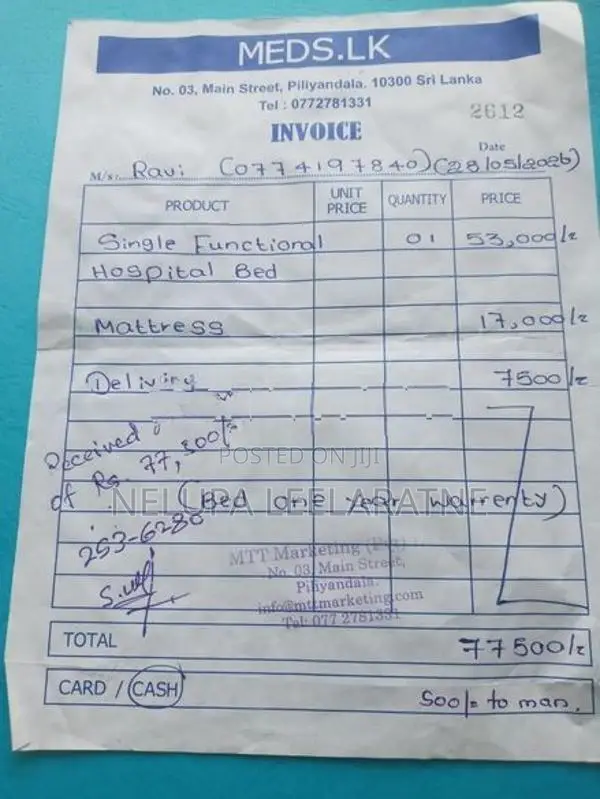 MEDS.LK
No. 03, Main Street, Piliyandala. 10300 Sri Lanka
Tel : 0772781331
2612
INVOICE
Date
M/s: Ravi (0774197840) (28/05/2026)
PRODUCT UNIT PRICE QUANTITY PRICE
Single Functional 01 53,000/=
Hospital Bed
Mattress 17,000/=
Deliviry 7500/=
Received
of Rs. 77,500/=
POSTED ON JIJI
NELUPA LEELARATNE
(Bed one year warrenty)
253-6280
MTT Marketing (Pvt)
No. 03, Main Street,
Piliyandala.
info@mttmarketing.com
Tel: 077 2781331
TOTAL 77500/=
CARD / CASH 500/= to man.